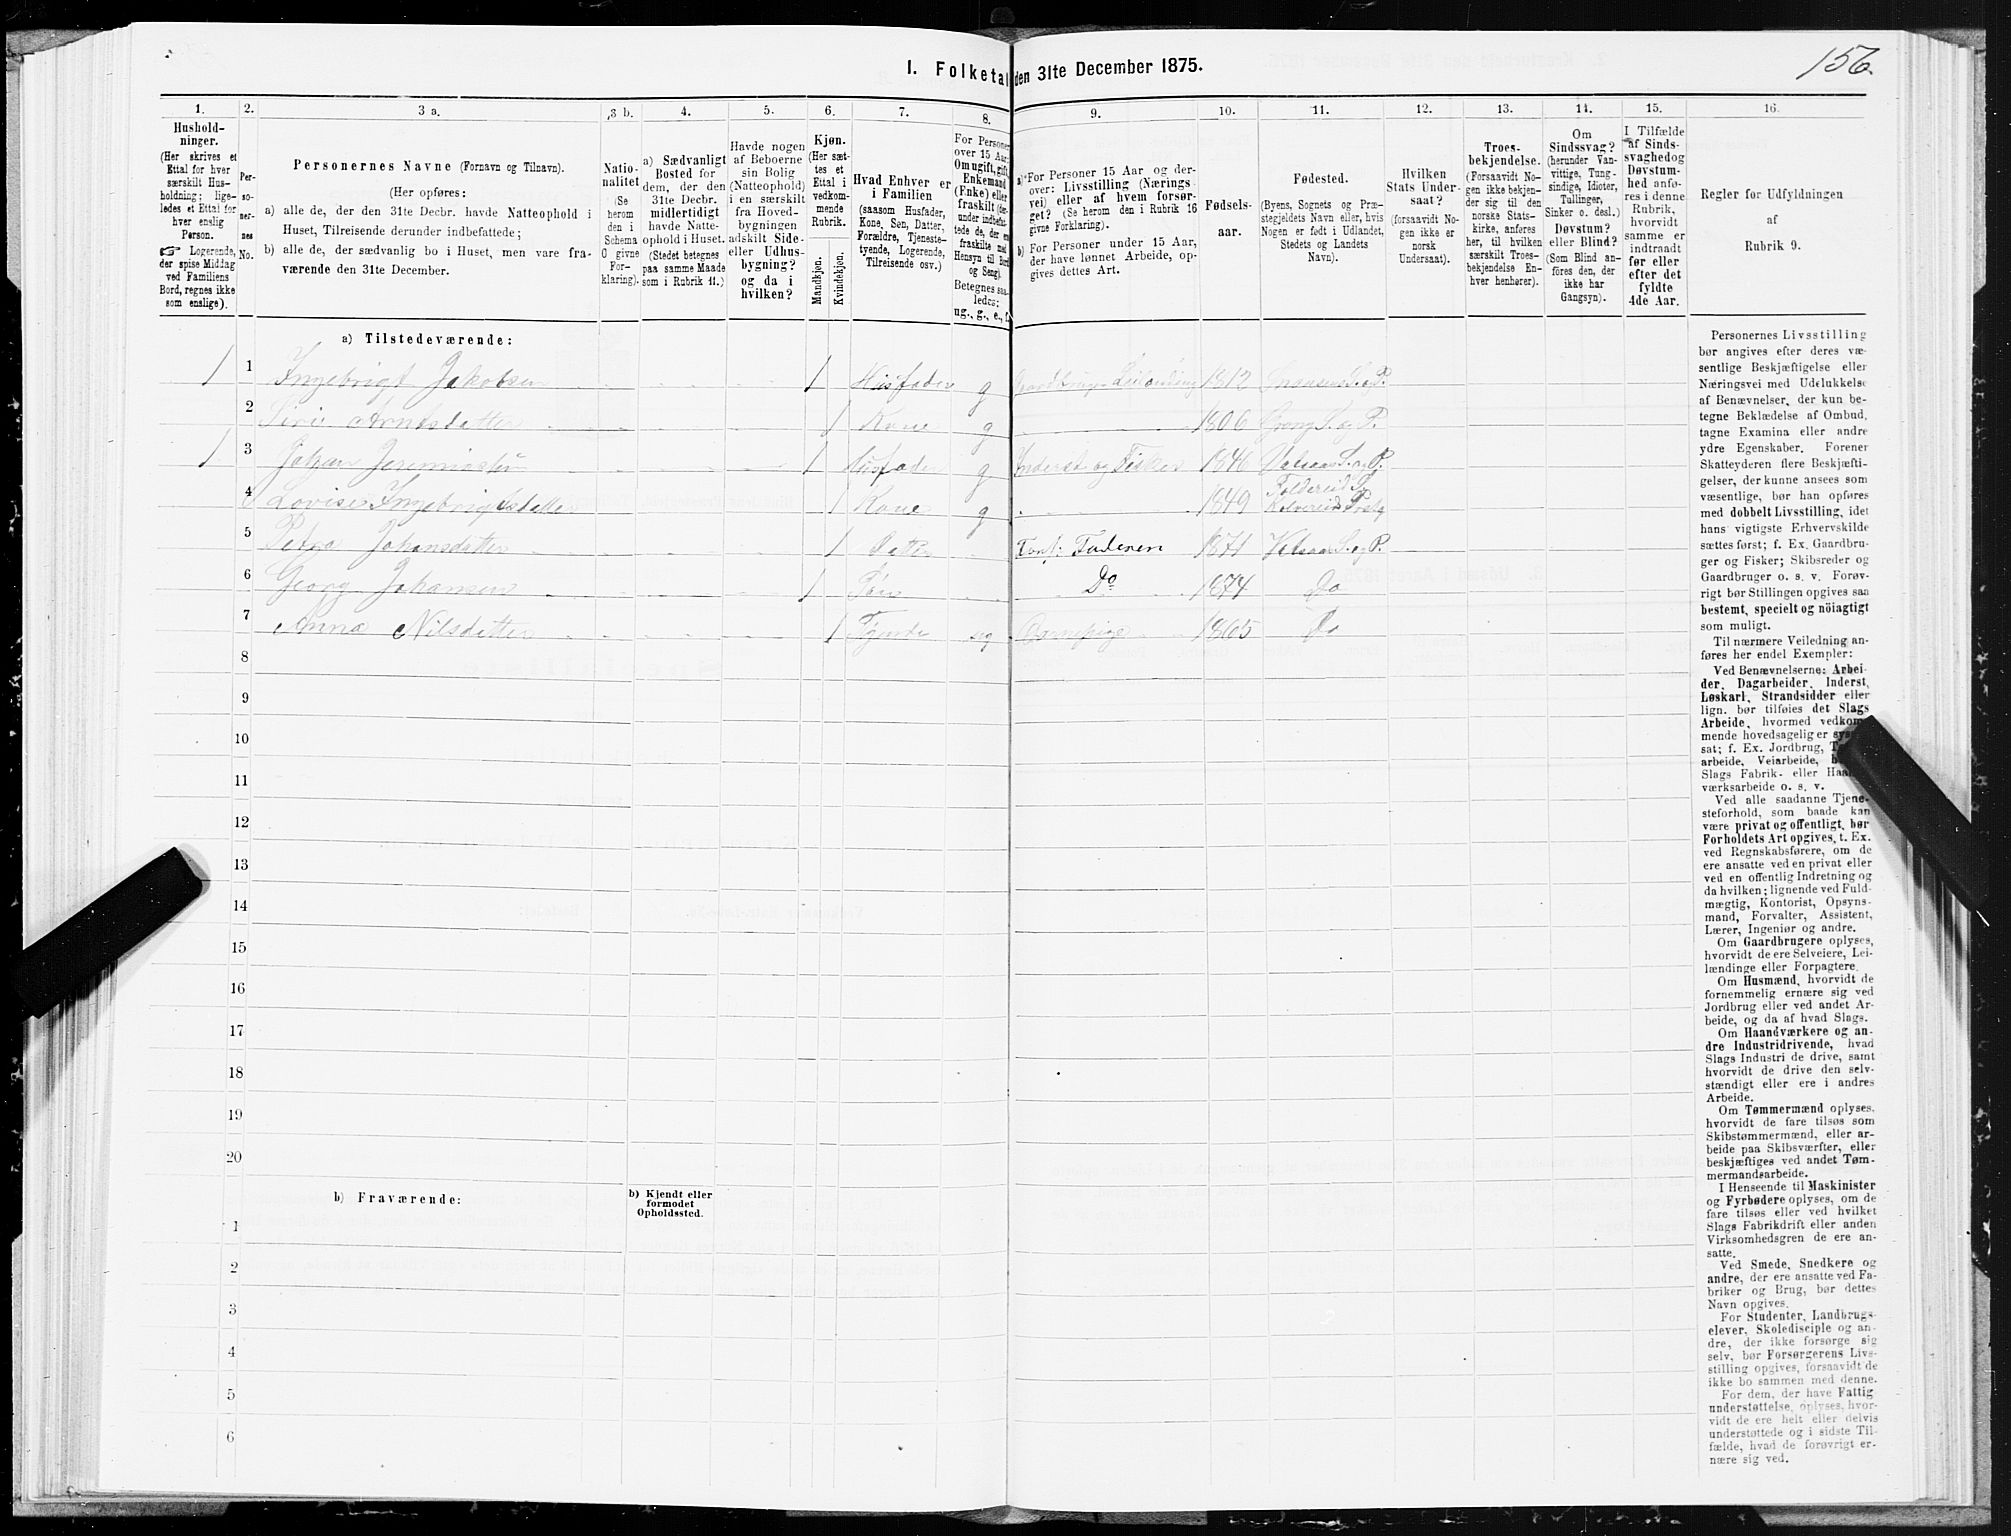 156
I. Folketal den 31te December 1875.
1. 2. 3 a. 3 b. 4. 5. 6. 7. 8. 9. 10. 11. 12. 13. 14. 15. 16.
Hushold-
ninger.
(Her skrives et
Ettal for hver
særskilt Hus-
holdning; lige-
ledes et Ettal for
hver enslig
Person.
☞ Logerende,
der spise Middag
ved Familiens
Bord, regnes ikke
som enslige).
Per-
so-
ner-
nes
No.
Personernes Navne (Fornavn og Tilnavn).
(Her opføres:
a) alle de, der den 31te Decbr. havde Natteophold i
Huset, Tilreisende derunder indbefattede;
b) alle de, der sædvanlig bo i Huset, men vare fra-
værende den 31te December.
Natio-
nalitet
(Se
herom
den i
Schema
O givne
For-
klaring).
a) Sædvanligt
Bosted for
dem, der den
31te Decbr.
midlertidigt
havde Natte-
ophold i Huset.
(Stedet betegnes
paa samme Maade
som i Rubrik 11.)
Havde nogen
af Beboerne
sin Bolig
(Natteophold)
i en særskilt
fra Hoved-
bygningen
adskilt Side-
eller Udhus-
bygning?
og da i
hvilken?
Kjøn.
(Her sæt-
tes et
Ettal i
vedkom-
mende
Rubrik.
Mandkjøn.
Kvindekjøn.
Hvad Enhver er
i Familien
(saasom Husfader,
Kone, Søn, Datter,
Forældre, Tjeneste-
tyende, Logerende,
Tilreisende osv.)
For Personer
over 15 Aar:
Om ugift, gift,
Enkemand
(Enke) eller
fraskilt (der-
under indbefat-
tede de, der ere
fraskilte med
Hensyn til Bord
og Seng).
Betegnes saa-
ledes:
ug., g., e., f.
a) For Personer 15 Aar og der-
over: Livsstilling (Nærings-
vei) eller af hvem forsør-
get? (Se herom den i Rubrik 16
givne Forklaring).
b) For Personer under 15 Aar,
der have lønnet Arbeide, op-
gives dettes Art.
Fødsels-
aar.
Fødested.
(Byens, Sognets og Præ-
stegjeldets Navn eller, hvis
Nogen er født i Udlandet,
Stedets og Landets
Navn).
Hvilken
Stats Under-
saat?
(forsaavidt No-
gen ikke er
norsk
Undersaat).
Troes-
bekjendelse.
(Forsaavidt No-
gen ikke bekjen-
der sig til den
norske Stats-
kirke, anføres
her, til hvilken
særskilt Troes-
bekjendelse En-
hver henhører).
Om
Sindssvag?
(herunder Van-
vittige, Tung-
sindige, Idioter,
Tullinger,
Sinker o. desl.)
Døvstum?
eller Blind?
(Som Blind an-
føres den, der
ikke har
Gangsyn).
I Tilfælde
af Sinds-
svaghed og
Døvstum-
hed anfø-
res i denne
Rubrik,
hvorvidt
samme er
indtraadt
før eller
efter det
fyldte
4de Aar.
Regler for Udfyldningen
af
Rubrik 9.
a) Tilstedeværende:
1 1 Ingebrigt Jakobsen 1 Husfader g Gaardbruger Leilænding 1812 S. og P.
2 Siri Arntsdatter 1 Kone g 1806 Grong S. og P.
1 3 Johan Jeremiassen 1 Husfader g Inderst og Fisker 1846 S. og P.
4 Lovise Ingebrigtsdatter 1 Kone g 1849 Foldereid S. Kolvereid Prstg
5 Petra Johansdatter 1 Datter Fors: Faderen 1871 S. og P.
6 Georg Johansen 1 Søn Do 1874 Do
7 Anna Nilsdatter 1 Tjende ug Barnepige 1865 Do
8
9
10
11
12
13
14
15
16
17
18
19
20
b) Fraværende:
b) Kjendt eller
formodet
Opholdssted.
1
2
3
4
5
6
Personernes Livsstilling
bør angives efter deres væ-
sentlige Beskjæftigelse eller
Næringsvei med Udelukkelse
af Benævnelser, der kun be-
tegne Beklædelse af Ombud,
tagne Examina eller andre
ydre Egenskaber. Forener
Skatteyderen flere Beskjæfti-
gelser, der kunne ansees som
væsentlige, bør han opføres
med dobbelt Livsstilling, idet
hans vigtigste Erhvervskilde
sættes først; f. Ex. Gaardbru-
ger og Fisker; Skibsreder og
Gaardbruger o. s. v. Forøv-
rigt bør Stillingen opgives saa
bestemt, specielt og nöiagtigt
som muligt.
Til nærmere Veiledning an-
føres her endel Exempler:
Ved Benævnelserne: Arbei-
der, Dagarbeider, Inderst,
Løskarl, Strandsidder eller
lign. bør tilføies det Slags
Arbeide, hvormed vedkom-
mende hovedsagelig er syssel-
sat; f. Ex. Jordbrug,
arbeide, Veiarbeide,
Slags Fabrik- eller Haand-
værksarbeide o. s. v.
Ved alle saadanne Tjene-
steforhold, som baade kan
være privat og offentligt, bør
Forholdets Art opgives, t. Ex.
ved Regnskabsførere, om de
ere ansatte ved en privat eller
ved en offentlig Indretning og
da hvilken; lignende ved Fuld-
mægtig, Kontorist, Opsyns-
mand, Forvalter, Assistent,
Lærer, Ingeniør og andre.
Om Gaardbrugere oplyses,
hvorvidt de ere Selveiere, Lei-
lændinge eller Forpagtere.
Om Husmænd, hvorvidt de
fornemmelig ernære sig ved
Jordbrug eller ved andet Ar-
beide, og da af hvad Slags.
Om Haandværkere og an-
dre Industridrivende, hvad
Slags Industri de drive, samt
hvorvidt de drive den selv-
stændigt eller ere i andres
Arbeide.
Om Tømmermænd oplyses,
hvorvidt de fare tilsøs som
Skibstømmermænd, eller ar-
beide paa Skibsværfter, eller
beskjæftiges ved andet Tøm-
mermandsarbeide.
I Henseende til Maskinister
og Fyrbødere oplyses, om de
fare tilsøs eller ved hvilket
Slags Fabrikdrift eller anden
Virksomhedsgren de ere an-
satte.
Ved Smede, Snedkere og
andre, der ere ansatte ved Fa-
briker og Brug, bør dettes
Navn opgives.
For Studenter, Landbrugs-
elever, Skoledisciple og an-
dre, der ikke forsørge sig
selv, bør Forsørgerens Livs-
stilling opgives, forsaavidt de
ikke bo sammen med denne.
For dem, der have Fattig
understøttelse, oplyses, hvor-
vidt de ere helt eller delvis
understøttede og i sidste Til-
fælde, hvad de forøvrigt er-
nære sig ved.